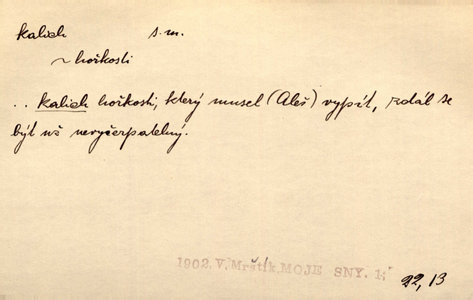 kalich s. m.
~ hořkosti
.. kalich hořkosti, který musel (Aleš) vypít, zdál se
být už nevyčerpatelný.
1902. V. Mrštík, MOJE SNY. 1;
22, 13